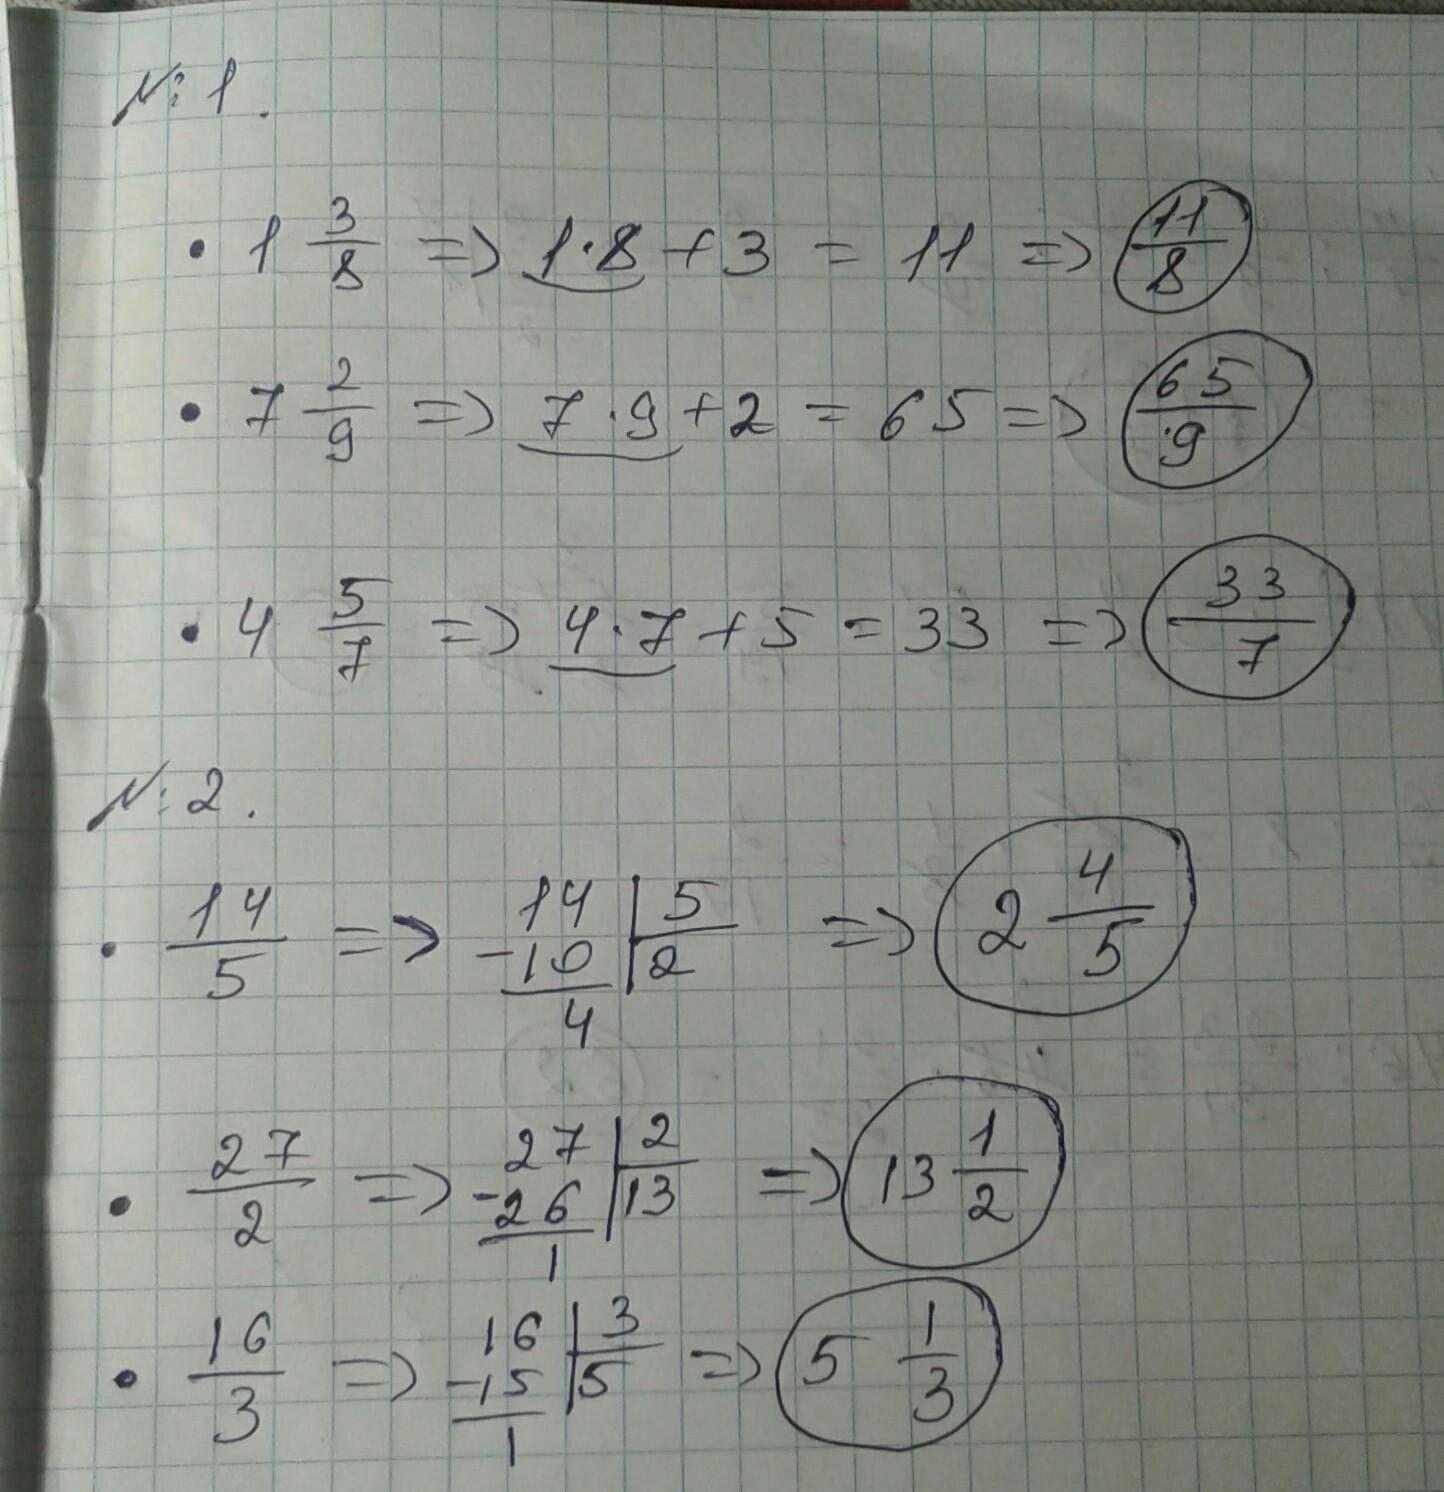 № 1.
• 1 3/8 => 1·8 + 3 = 11 => 11/8
• 7 2/9 => 7·9 + 2 = 65 => 65/9
• 4 5/7 => 4·7 + 5 = 33 => 33/7
№ 2.
• 14/5 => 14 | 5 => 2 4/5
-10 | 2
4
• 27/2 => 27 | 2 => 13 1/2
-26 | 13
1
• 16/3 => 16 | 3 => 5 1/3
-15 | 5
1